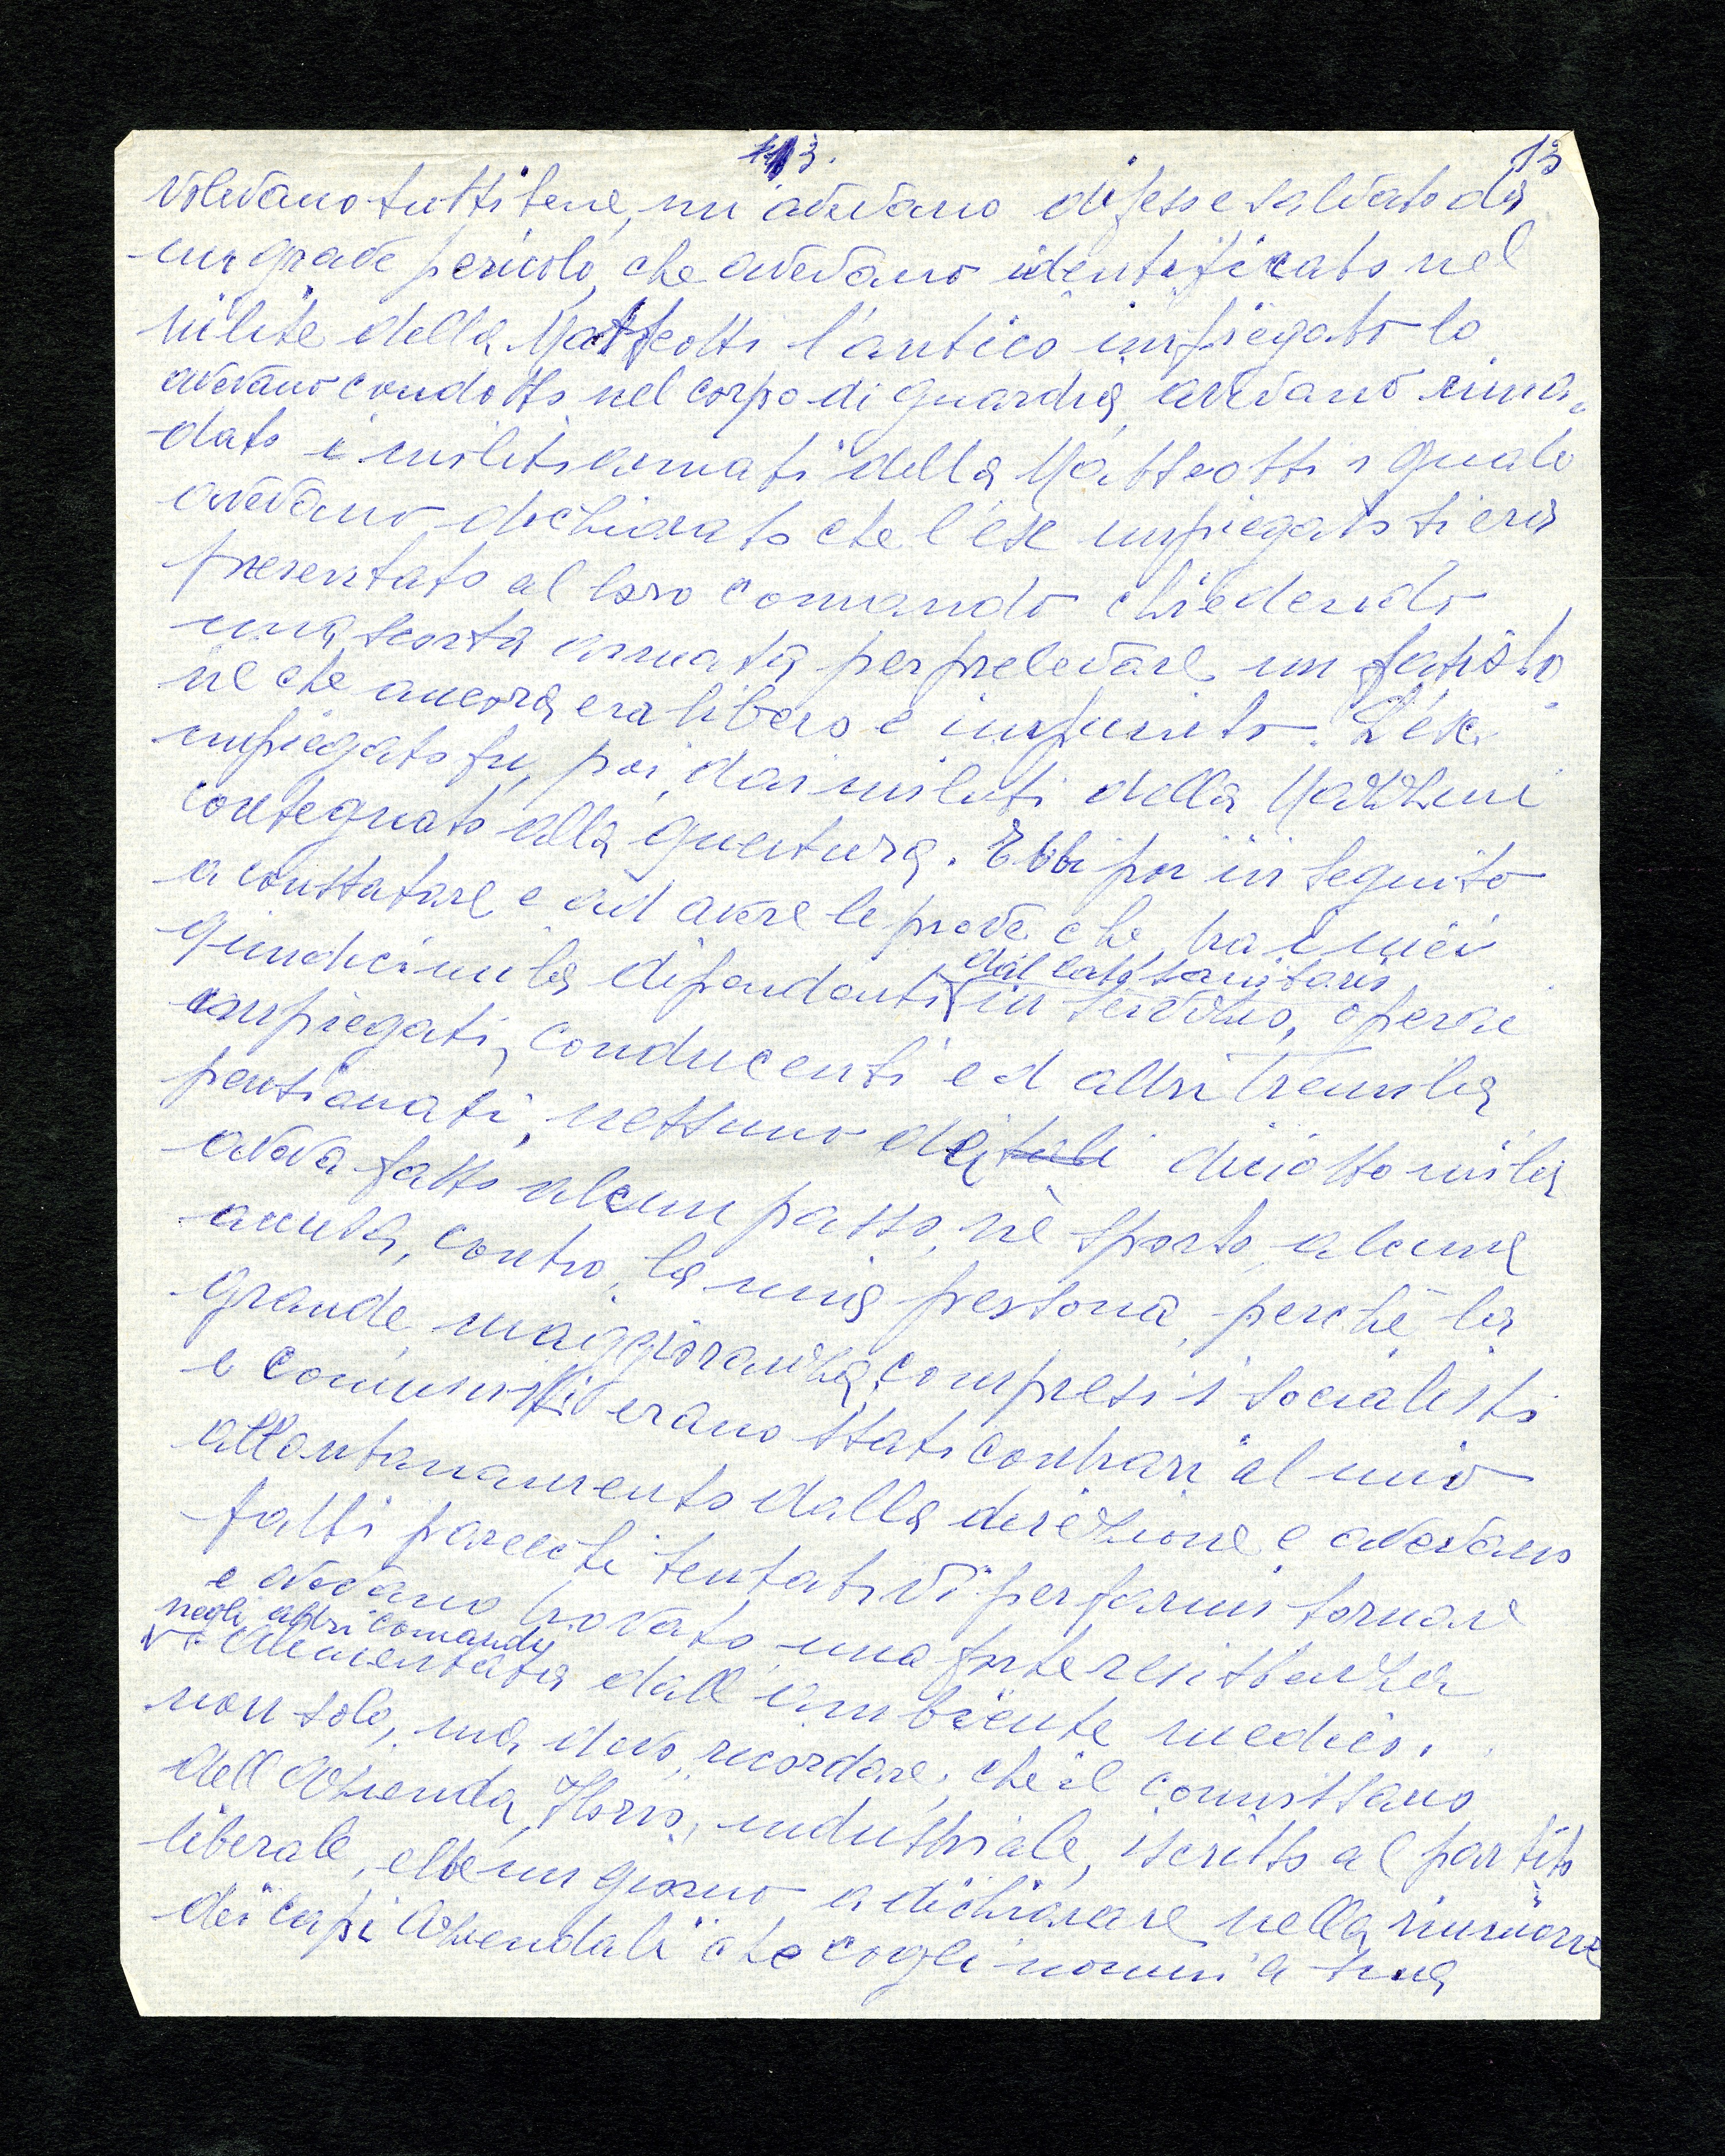 113. 13
volevano tutti bene, mi avevano difeso e salvato da
un grave pericolo, che avevano identificato nel
milite della Matteotti l'antico impiegato lo
avevano condotto nel corpo di guardia, avevano riman=
dato i militi armati della Matteotti i quali
avevano dichiarato che l'ex impiegato si era
presentato al loro comando chiedendo
una scorta armata per prelevare un fascisto
ne che ancora era libero e impunito. L'ex
impiegato fu, poi, dai militi della Mazzini
consegnato alla questura. Ebbi poi in seguito
a constatare e ad avere le prove che, tra i miei
quindicimila dipendenti
dal lato sanitario
in servizio, operai
impiegati, conducenti ed altri tremila
pensionati, nessuno dei tali diciottomila
aveva fatto alcun passo, nè sporto, alcuna
accusa, contro, la mia persona, perchè la
grande maggioranza, compresi i socialisti
e comunisti erano stati contrari al mio
allontanamento dalla direzione e avevano
fatti parecchi tentativi per farmi tornare
e avevano trovato una forte resistenza
negli altri comandi
v: alimentata dall'ambiente medico.
non solo, ma devo, ricordare, che il commissario
dell'Azienda, industriale, iscritto al partito
liberale, ebbe un giorno a dichiarare nella riunione
dei capi Aziendali che cogli uomini a sua